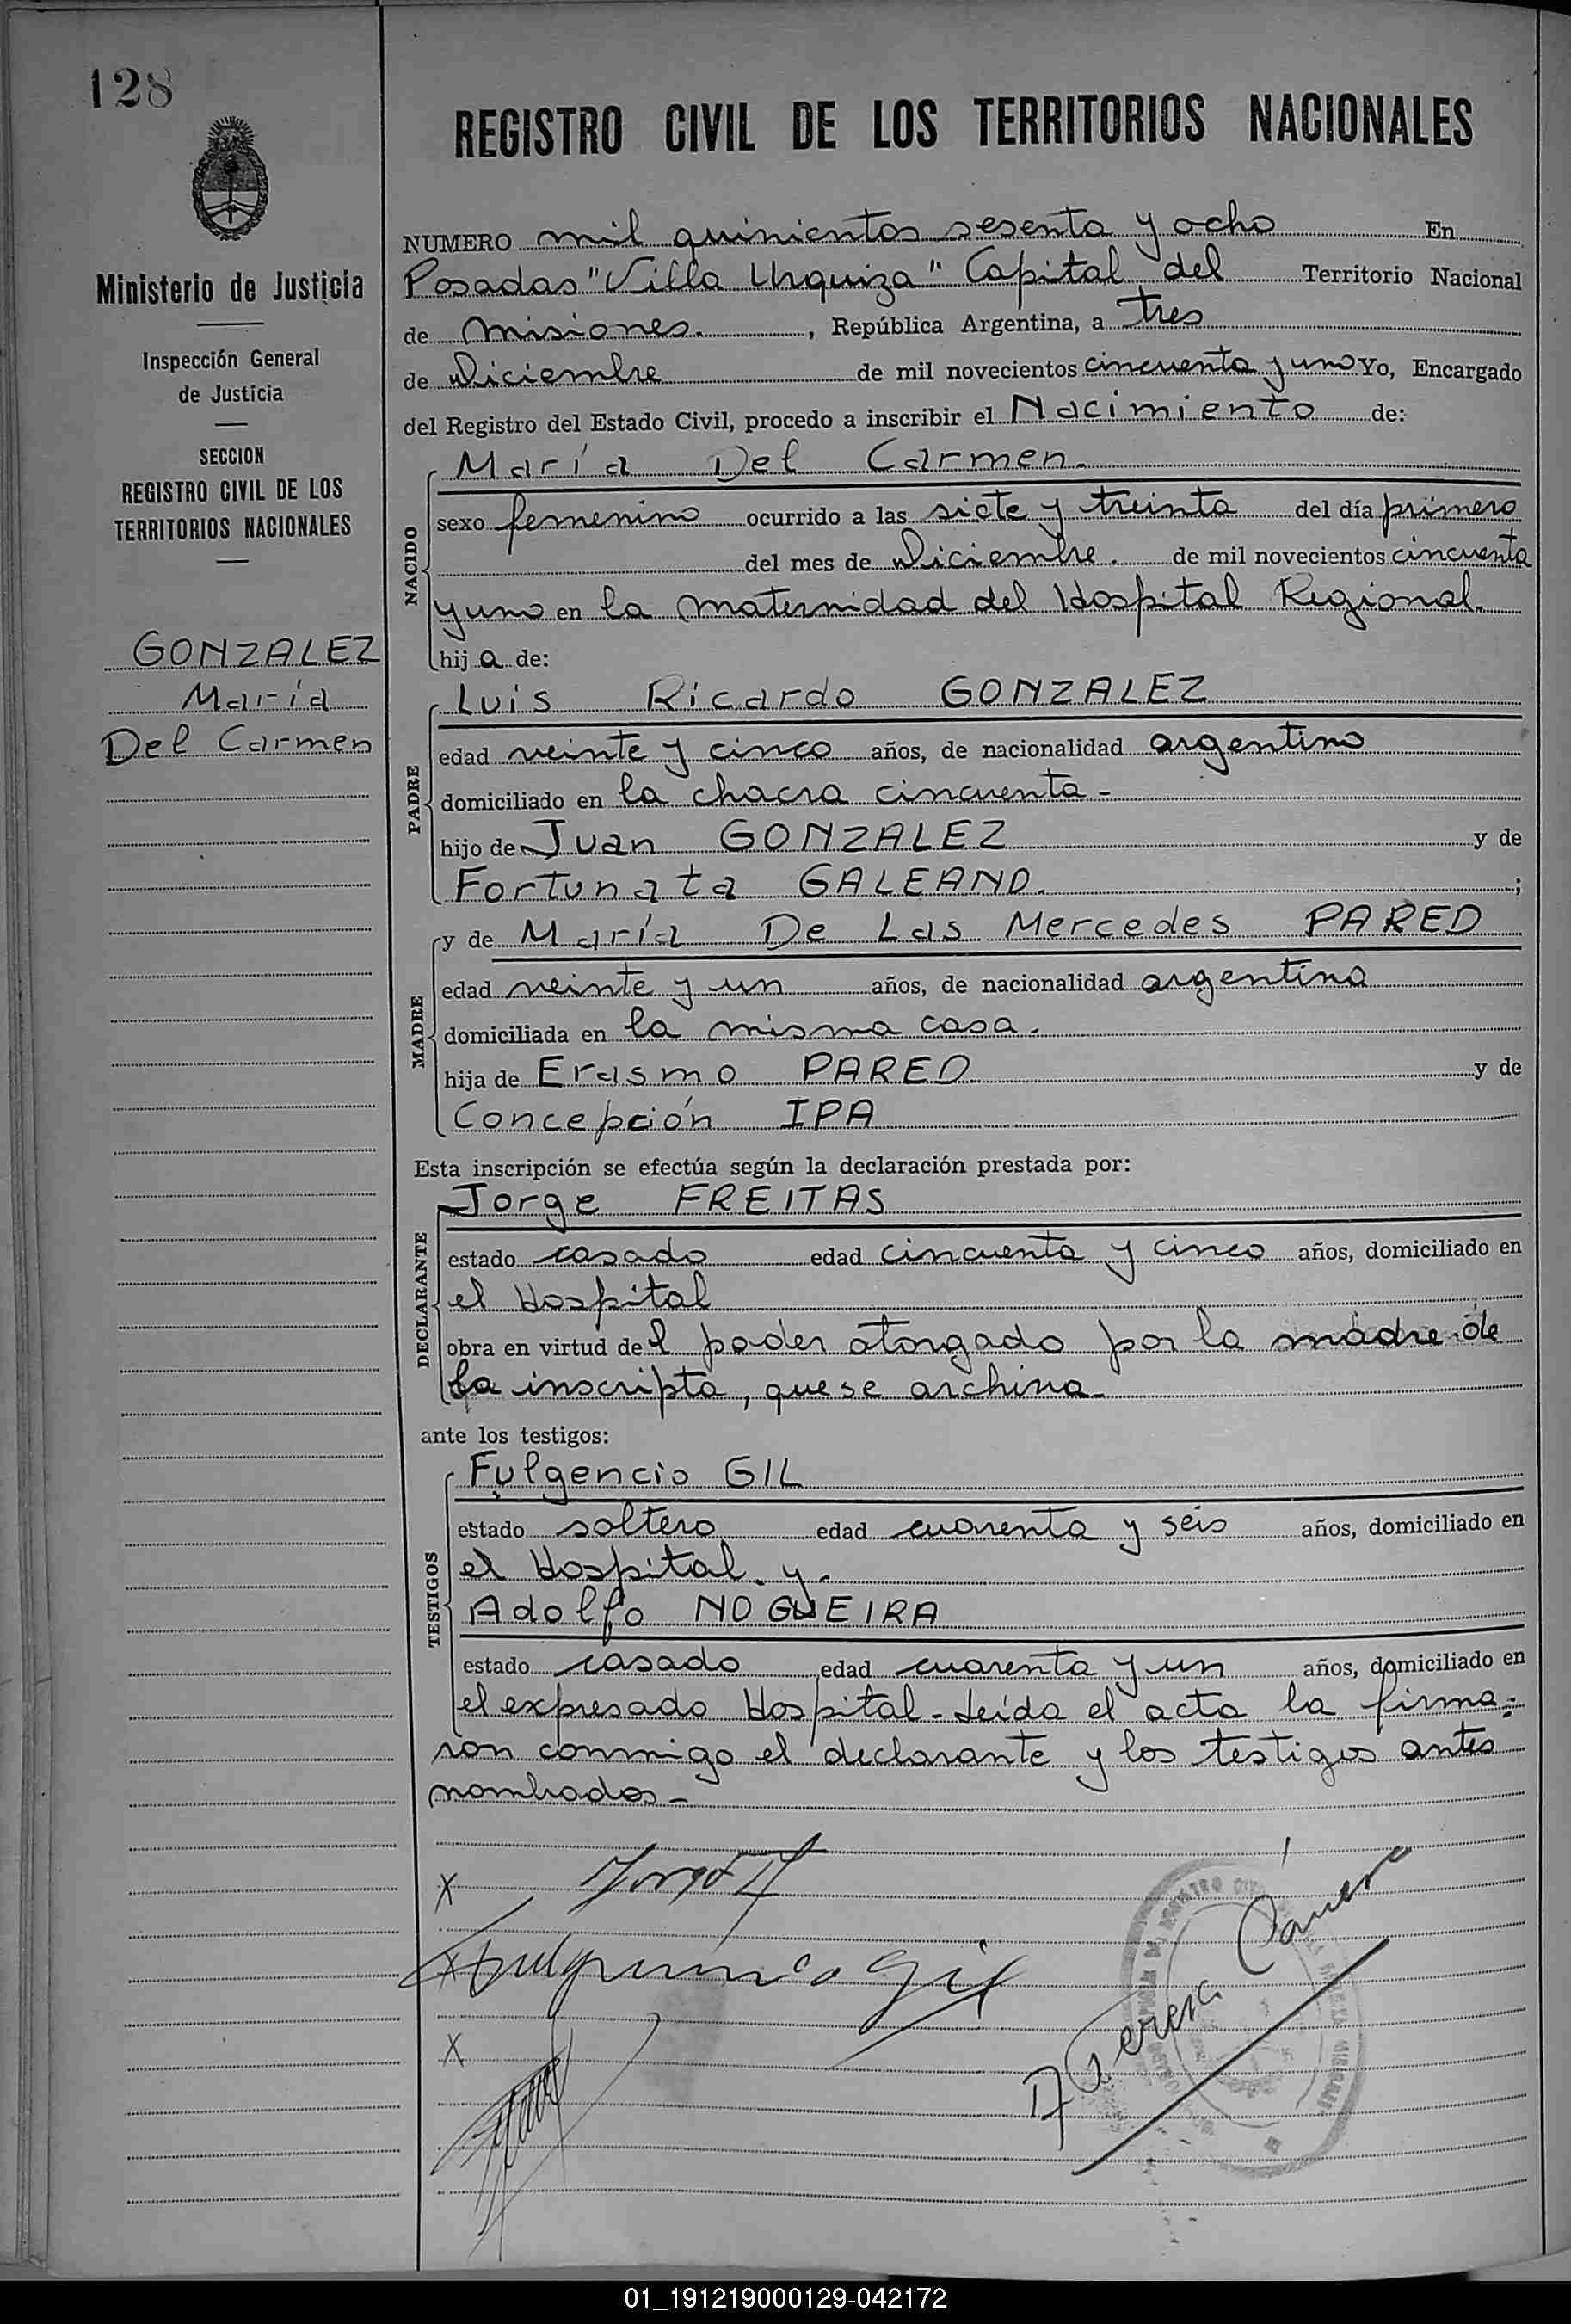 128
Ministerio de Justicia
Inspección General
de Justicia
SECCION
REGISTRO CIVIL DE LOS
TERRITORIOS NACIONALES
GONZALEZ
María
Del Carmen
REGISTRO CIVIL DE LOS TERRITORIOS NACIONALES
NUMERO mil quinientos sesenta y ocho En
Posadas "Villa Urquiza" Capital del Territorio Nacional
de Misiones. , República Argentina, a tres
de Diciembre de mil novecientos cincuenta y uno Yo, Encargado
del Registro del Estado Civil, procedo a inscribir el Nacimiento de:
NACIDO
María Del Carmen.
sexo femenino ocurrido a las siete y treinta del día primero
del mes de Diciembre. de mil novecientos cincuenta
y uno en la maternidad del Hospital Regional.
hij a de:
PADRE
Luis Ricardo GONZALEZ
edad veinte y cinco años, de nacionalidad argentino
domiciliado en la chacra cincuenta -
hijo de Juan GONZALEZ y de
Fortunata GALEANO. ;
MADRE
y de María De Las Mercedes PARED
edad veinte y un años, de nacionalidad argentina
domiciliada en la misma casa.
hija de Erasmo PARED y de
Concepción IPA
Esta inscripción se efectúa según la declaración prestada por:
DECLARANTE
Jorge FREITAS
estado casado edad cincuenta y cinco años, domiciliado en
el Hospital
obra en virtud de l poder otorgado por la madre de
la inscripta, que se archiva.
ante los testigos:
TESTIGOS
Fulgencio GIL
estado soltero edad cuarenta y seis años, domiciliado en
el Hospital. y.
Adolfo NOGUEIRA
estado casado edad cuarenta y un años, domiciliado en
el expresado Hospital - Leída el acta la firma-
ron conmigo el declarante y los testigos antes
nombrados -
X
X Fulgencio Gil
X
01_191219000129-042172